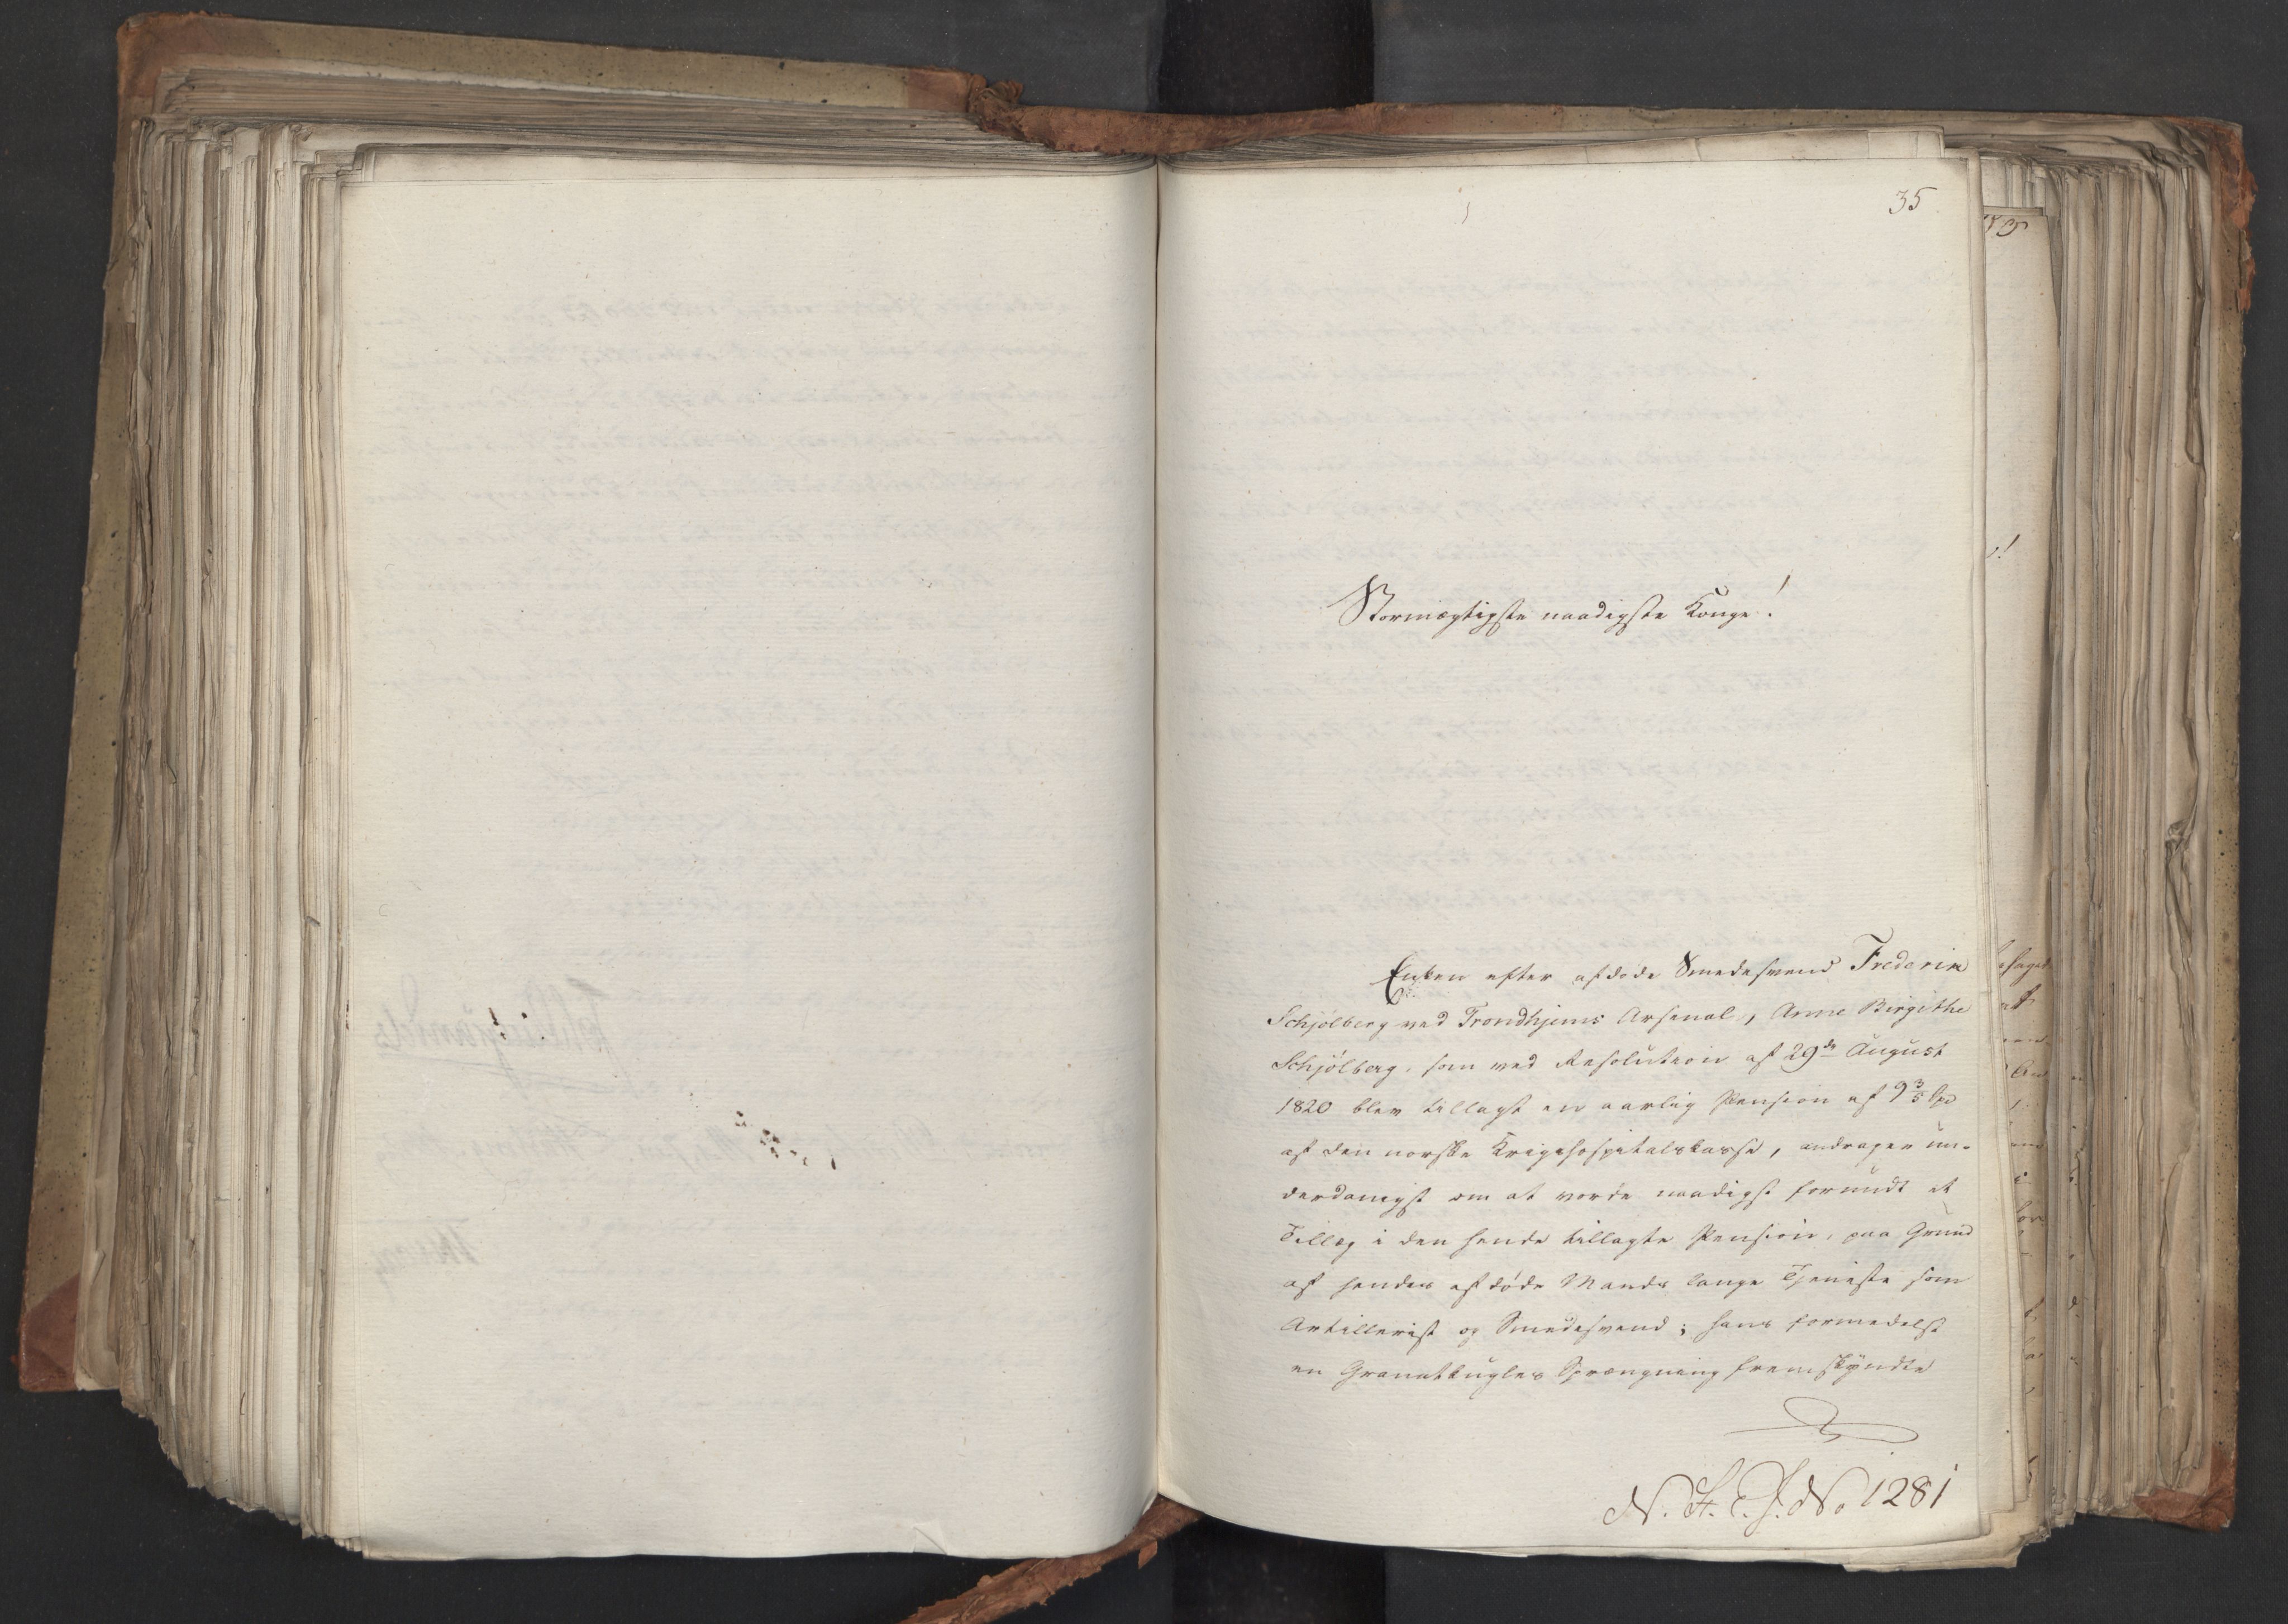 35
Stormægtigste naadigste Konge!
Enken efter afdøde Smedesvend Frederik
Schjölberg ved Trondhjems Arsenal, Anne Birgithe
Schjölberg, som ved Resolution af 29de August
1820 blev tillagt en aarlig Pension af 9 3/5 Spd
af den norske Krigshospitalskasse, andrager un-
derdanigst om at vorde naadigst forundt et
Tillæg i den hende tillagte Pension, paa Grund
af hendes afdøde Mands lange Tjeneste som
Artillerist og Smedesvend; hans formedelst
en Granatkugles Sprængning fremskyndte
N. A. C. J. No 1281